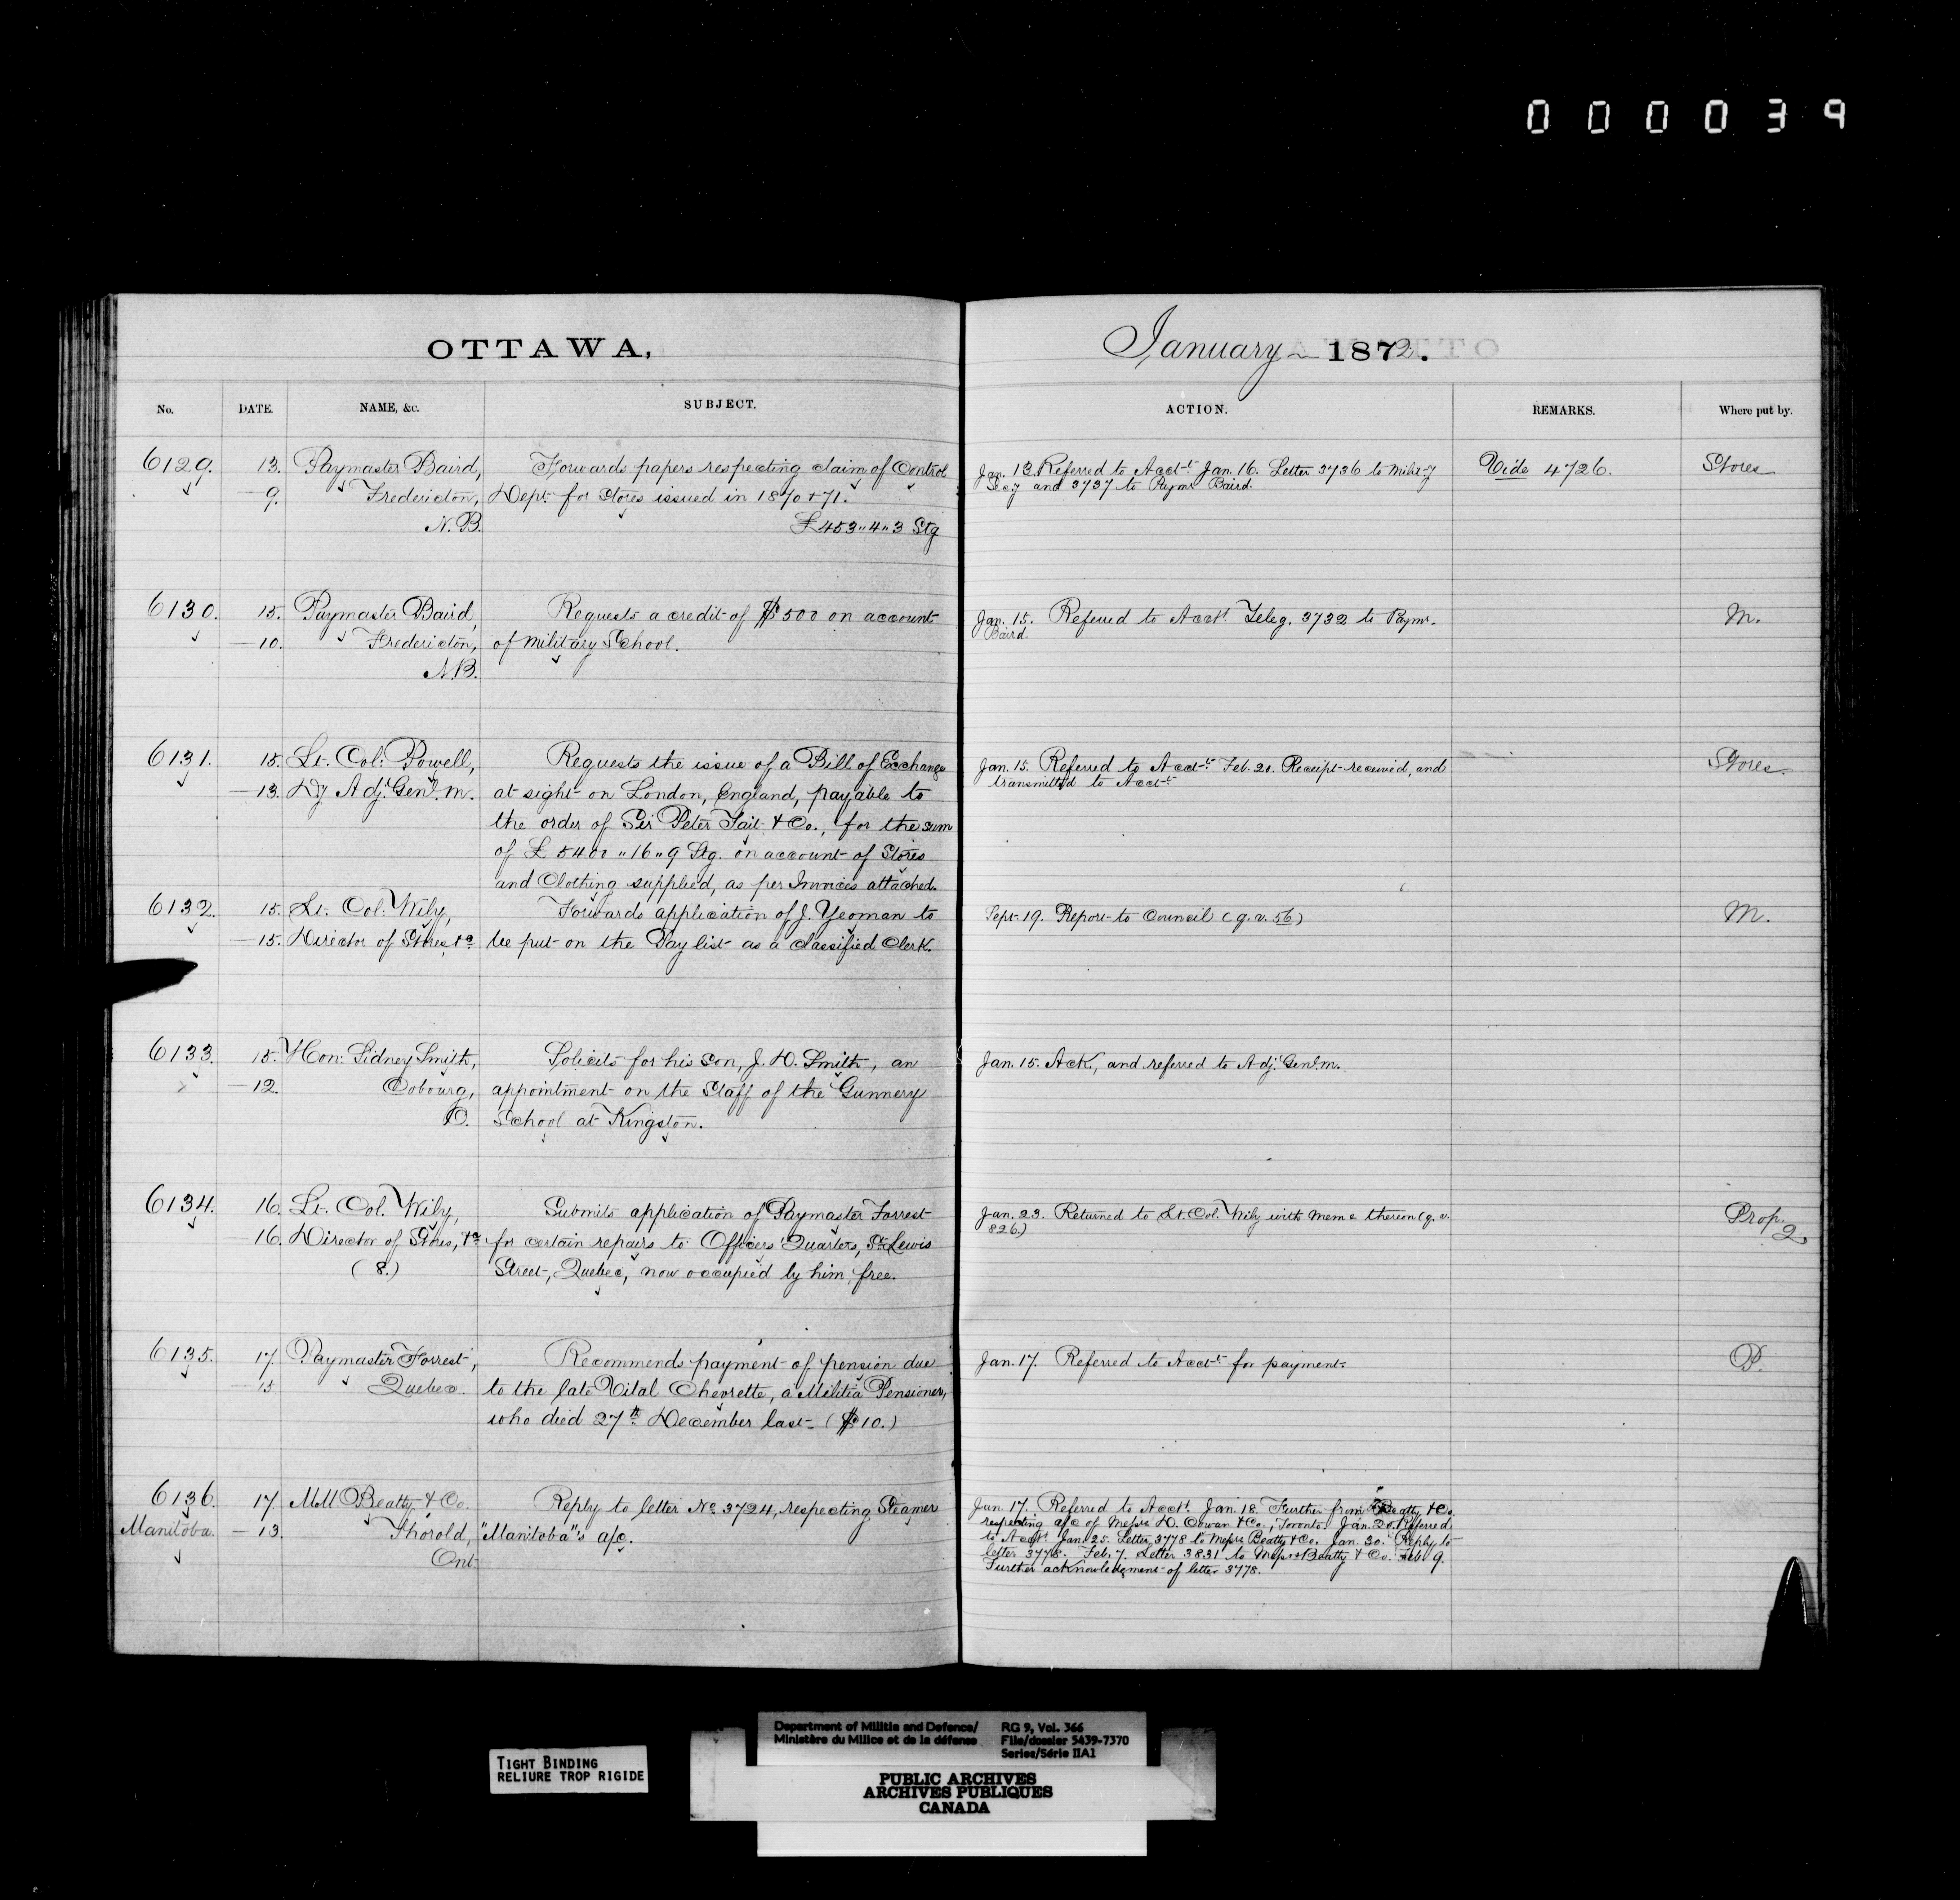 000039
OTTAWA,
January 1872.
No. DATE. NAME, &c. SUBJECT.
ACTION. REMARKS. Where put by.
6129. 13. Paymaster Baird, Forwards papers respecting claim of Control
9. Fredericton, Dept. for Stores issued in 1870 & 71.
N.B. £453"4"3 Stg
Jan. 13. Referred to Acct. Jan. 16. Letter 3736 to Milit-y
Sec-y and 3737 to Paymr. Baird.
Vide 4726.
Stores
6130. 15. Paymaster Baird, Requests a credit of $500 on account
10. Fredericton, of Military School.
N.B.
Jan. 15. Referred to Acct. Teleg. 3732 to Paymr.
Baird.
M.
6131. 15. Lt. Col: Powell, Requests the issue of a Bill of Exchange
13. Dy Adj. Genl. M. at sight on London, England, payable to
the order of Sir Peter Tait & Co., for the sum
of £5400"16"9 Stg. on account of Stores
and Clothing supplied, as per Invoices attached.
Jan. 15. Referred to Acct. Feb. 20. Receipt received, and
transmitted to Acct.
Stores.
6132. 15. Lt. Col: Wily, Forwards application of J. Yeoman to
15. Director of Stores, &c be put on the Pay list as a classified Clerk.
Sept. 19. Report to Council (q.v. 56)
M.
6133. 15. Hon: Sidney Smith, Solicits for his son, J. D. Smith, an
12. Cobourg, appointment on the Staff of the Gunnery
O. School at Kingston.
Jan. 15. Ack, and referred to Adj. Genl. M.
6134. 16. Lt. Col. Wily, Submits application of Paymaster Forrest
16. Director of Stores, &c for certain repairs to Officers' Quarters, St. Lewis
(8.) Street, Quebec, now occupied by him, free.
Jan. 23. Returned to Lt. Col. Wily with Memo thereon (q.v.
826.)
Prop.
2.
6135. 17. Paymaster Forrest, Recommends payment of pension due
15 Quebec. to the late Vital Chevrette, a Militia Pensioner,
who died 27th December last ($10.)
Jan. 17. Referred to Acct. for payment.
P.
6136. 17. MM. Beatty & Co. Reply to letter No. 3724, respecting Steamer
Manitoba. 13. Thorold, "Manitoba"'s a/c.
Ont.
Jan. 17. Referred to Acct. Jan. 18. Further from Beatty & Co.
respecting a/c of Messrs D. Cowan & Co., Toronto. Jan. 20. Referred
to Acct. Jan. 25. Letter 3778 to Messrs Beatty & Co. Jan. 30. Reply to
letter 3778. Feb. 7. Letter 3831 to Messrs Beatty & Co. Feb. 9.
Further acknowledgment of letter 3778.
TIGHT BINDING
RELIURE TROP RIGIDE
Department of Militia and Defence/
Ministère du Milice et de la défense
RG 9, Vol. 366
File/dossier 5439-7370
Series/Série IIA1
PUBLIC ARCHIVES
ARCHIVES PUBLIQUES
CANADA